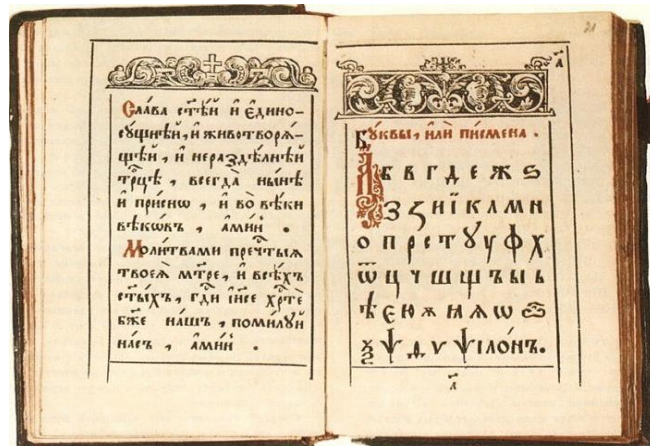 Сла́ва ст҃ѣ́й и҆ є҆дино-
сꙋ́щнѣй, и҆ животворѧ́-
щѣй, и҆ нераздѣ́лнѣй
трⷪ҇цѣ, всегда̀ ны́нѣ
и҆ при́снѡ, и҆ во вѣ́ки
вѣкѡ́въ, а҆ми́нь.
Моли́твами пречⷭ҇тыѧ
твоеѧ̀ мт҃ре, и҆ всѣ́хъ
ст҃ы́хъ, гдⷭ҇и і҆и҃се хрⷭ҇тѐ
бж҃е на́шъ, поми́лꙋй
на́съ, а҆ми́нь.
21
Бꙋ́квы, и҆лѝ писмена̀.
А Б В Г Д Е Ж Ѕ
З Ꙁ И Ї К Л М Н
О П Р С Т Ꙋ У Ф Х
Ѿ Ц Ч Ш Щ Ъ Ы Ь
Ѣ Є Ю Ѫ Ѧ Ꙗ Ѡ Ѽ
Ѯ Ѱ Ѳ Ѵ Ѱїло́нъ.